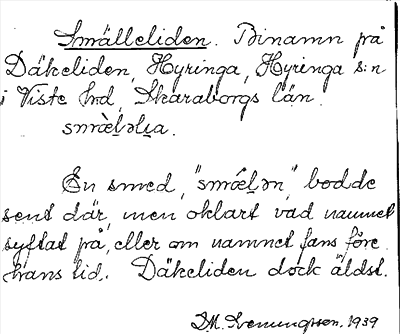 Smälleliden. Binamn på
Däkeliden, Hyringa, Hyringa s:n
i Viste hd, Skaraborgs län.
smæ̀l̥əli̯a.
En smed, "smǽl̥ən", bodde
sent där, men oklart vad namnet
syftat på, eller om namnet fans före
hans tid. Däkeliden dock äldst.
1939